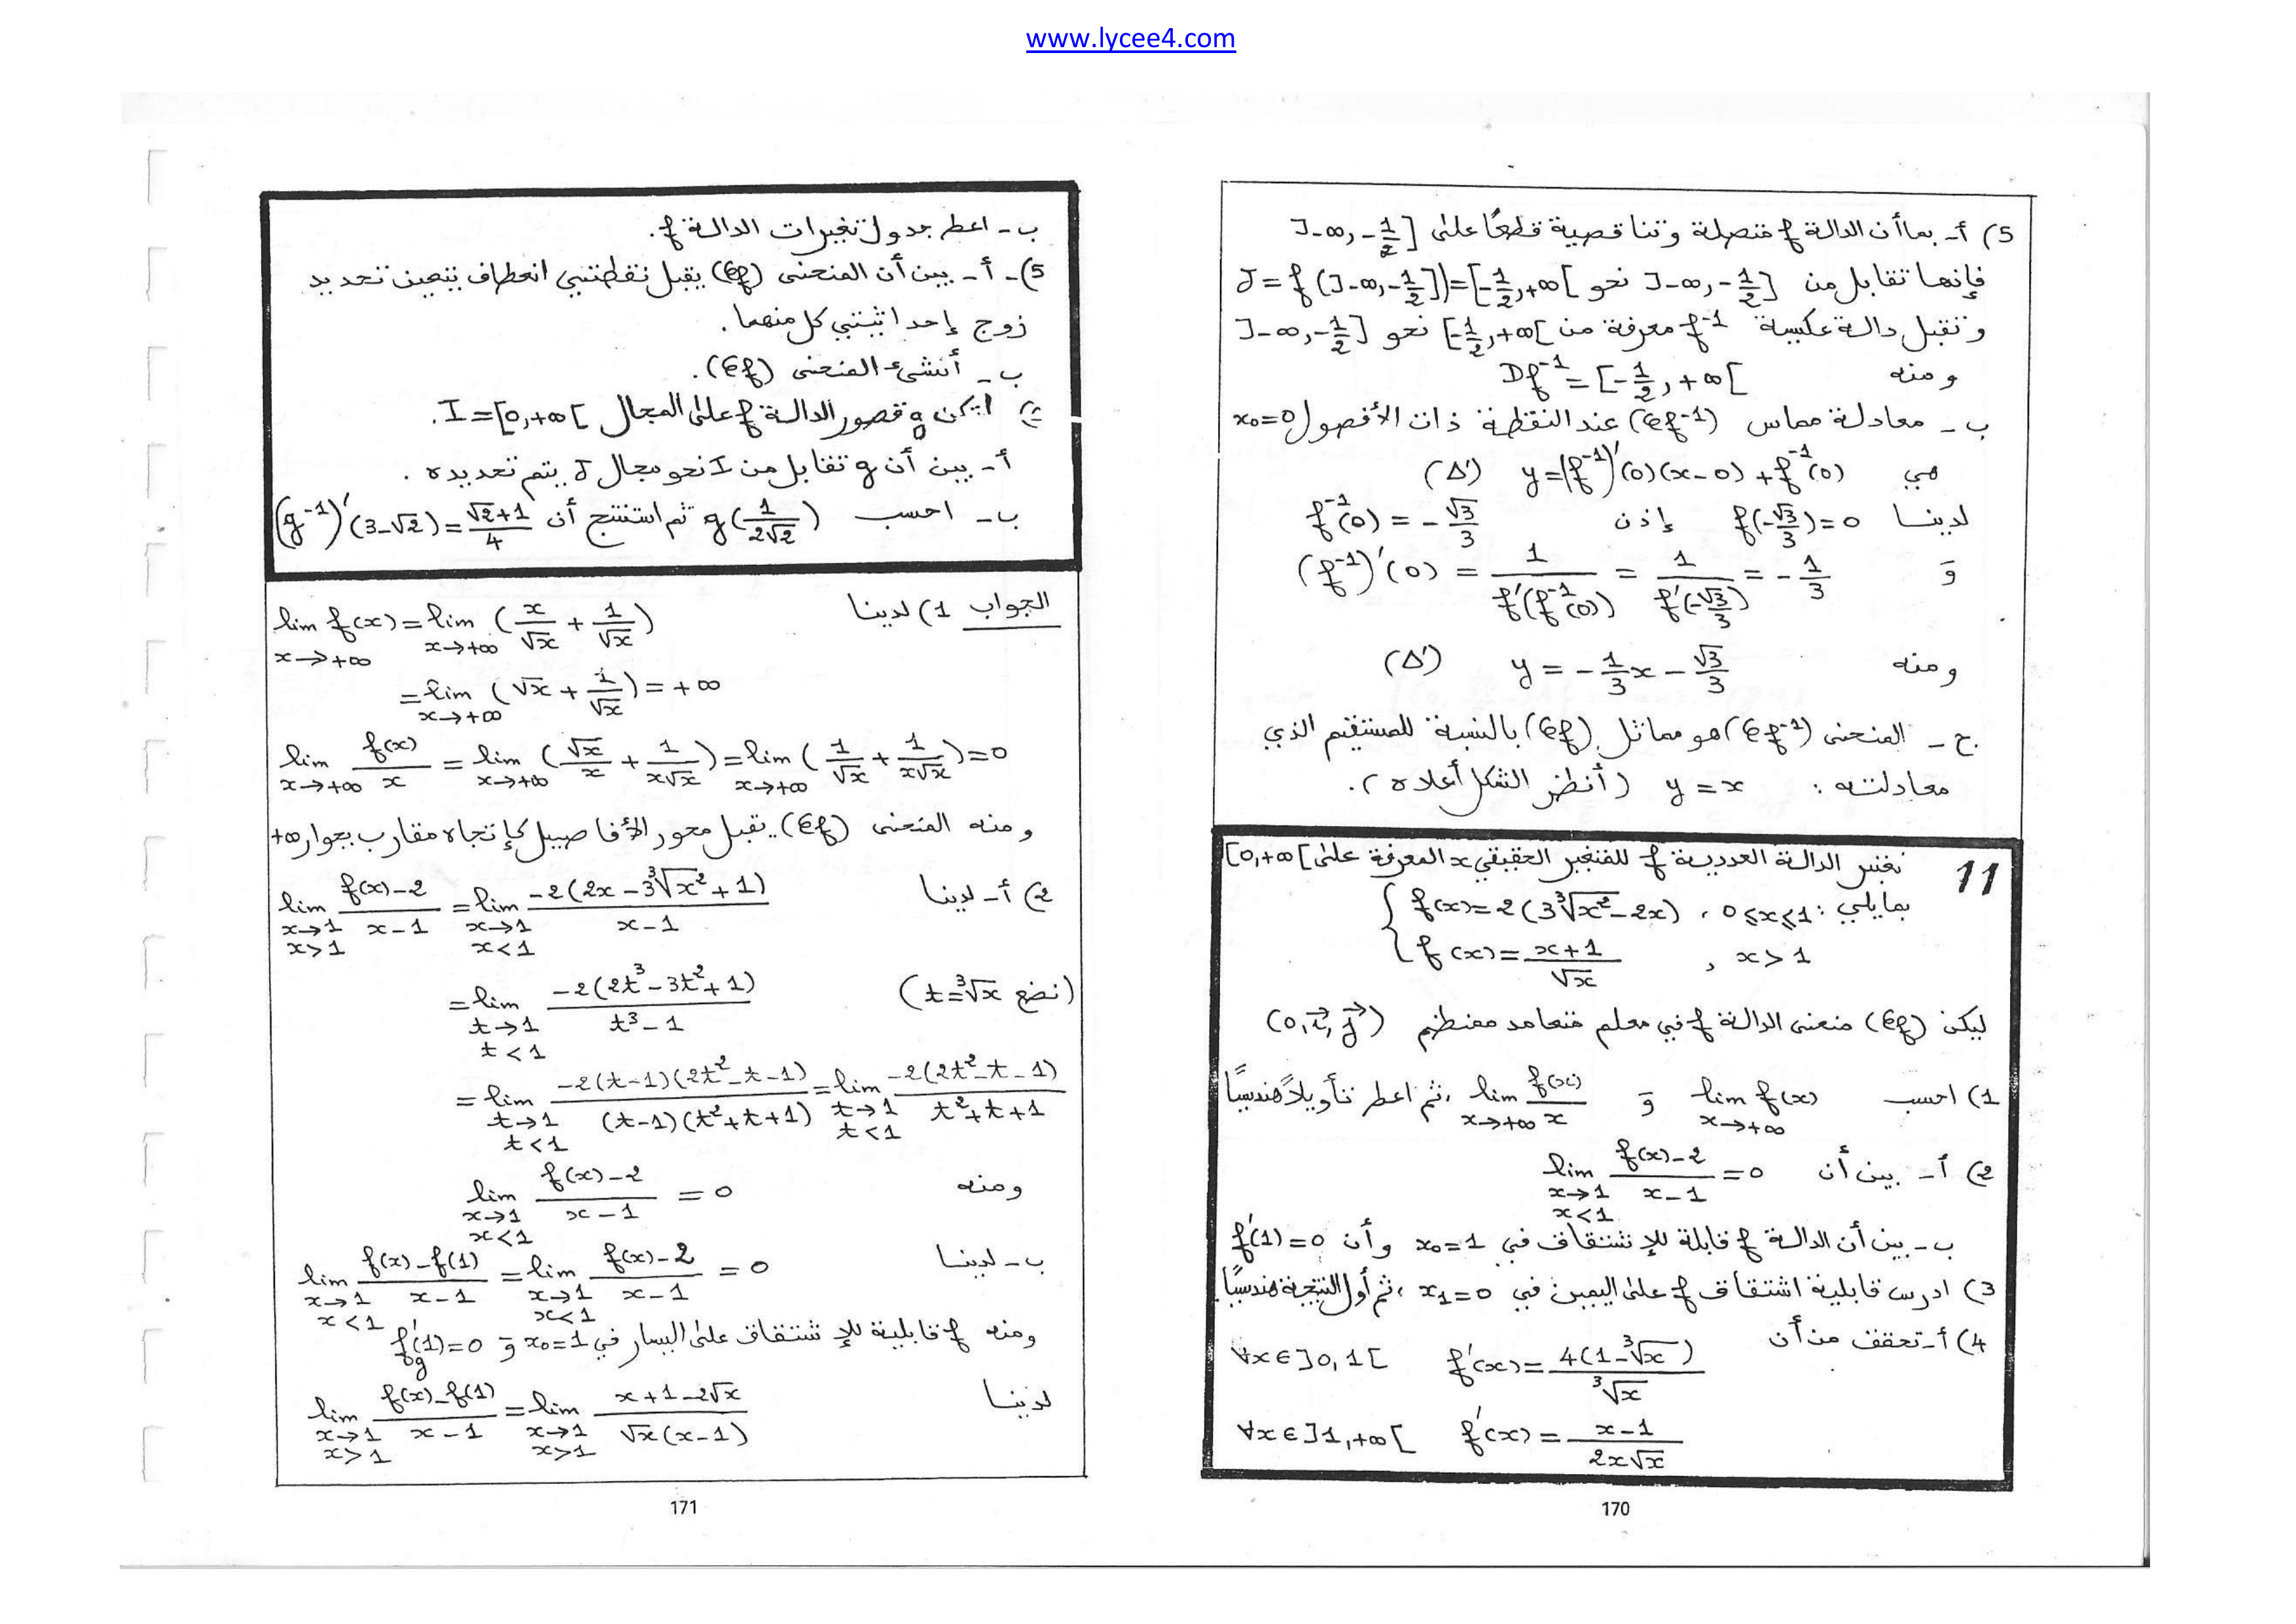 www.lycee4.com
5) أ- بما أن الدالة f متصلة وتناقصية قطعًا على ]-∞, -1/2]
فإنها تقابل من ]-∞, -1/2] نحو J = f(]-∞, -1/2]) = [-1/2, +∞[
وتقبل دالة عكسية f⁻¹ معرفة من [-1/2, +∞[ نحو ]-∞, -1/2]
ومنه Df⁻¹ = [-1/2, +∞[
ب - معادلة مماس (𝒞f⁻¹) عند النقطة ذات الأفصول x₀=0
هي y = (f⁻¹)'(0)(x-0) + f⁻¹(0) (Δ')
لدينا f(-√3/3) = 0 إذن f⁻¹(0) = -√3/3
وَ (f⁻¹)'(0) = 1/f'(f⁻¹(0)) = 1/f'(-√3/3) = -1/3
ومنه y = -1/3 x - √3/3 (Δ')
ج - المنحنى (𝒞f⁻¹) هو مماثل (𝒞f) بالنسبة للمستقيم الذي
معادلته : y = x (أنظر الشكل أعلاه).
11 نعتبر الدالة العددية f للمتغير الحقيقي x المعرفة على [0,+∞[
بمايلي : { f(x) = 2(3∛x² - 2x) , 0≤x≤1
f(x) = (x+1)/√x , x>1
ليكن (𝒞f) منحنى الدالة f في معلم متعامد ممنظم (0, i⃗, j⃗)
1) احسب lim x→+∞ f(x) وَ lim x→+∞ f(x)/x ، ثم اعط تأويلاً هندسيًا
2) أ - بين أن lim x→1 x<1 (f(x)-2)/(x-1) = 0
ب - بين أن الدالة f قابلة للإشتقاق في x₀=1 وأن f'(1)=0
3) ادرس قابلية اشتقاق f على اليمين في x₁=0 ، ثم أول النتيجة هندسيًا.
4) أ- تحقق من أن f'(x) = 4(1-∛x)/∛x ∀x∈]0,1[
f'(x) = (x-1)/(2x√x) ∀x∈]1,+∞[
170
ب - اعط جدول تغيرات الدالة f.
5)- أ - بين أن المنحنى (𝒞f) يقبل نقطتي انعطاف يتعين تحديد
زوج إحداثيتي كل منهما.
ب - أنشىء المنحنى (𝒞f).
ليكن g قصور الدالة f على المجال I = [0,+∞[.
أ - بين أن g تقابل من I نحو مجال J يتم تحديده.
ب - احسب g(1/(2√2)) ثم استنتج أن (g⁻¹)'(3-√2) = (√2+1)/4
الجواب 1) لدينا lim x→+∞ f(x) = lim x→+∞ (x/√x + 1/√x)
= lim x→+∞ (√x + 1/√x) = +∞
lim x→+∞ f(x)/x = lim x→+∞ (√x/x + 1/(x√x)) = lim x→+∞ (1/√x + 1/(x√x)) = 0
ومنه المنحنى (𝒞f) يقبل محور الأفاصيل كإتجاه مقارب بجوار +∞
2) أ - لدينا lim x→1 x>1 (f(x)-2)/(x-1) = lim x→1 x<1 -2(2x - 3∛x² + 1)/(x-1)
= lim t→1 t<1 -2(2t³ - 3t² + 1)/(t³-1) (نضع t=∛x)
= lim t→1 t<1 -2(t-1)(2t²-t-1)/((t-1)(t²+t+1)) = lim t→1 t<1 -2(2t²-t-1)/(t²+t+1)
ومنه lim x→1 x<1 (f(x)-2)/(x-1) = 0
ب - لدينا lim x→1 x<1 (f(x)-f(1))/(x-1) = lim x→1 x<1 (f(x)-2)/(x-1) = 0
ومنه f قابلية للإشتقاق على اليسار في x₀=1 وَ f'g(1)=0
لدينا lim x→1 x>1 (f(x)-f(1))/(x-1) = lim x→1 x>1 (x+1-2√x)/(√x(x-1))
171